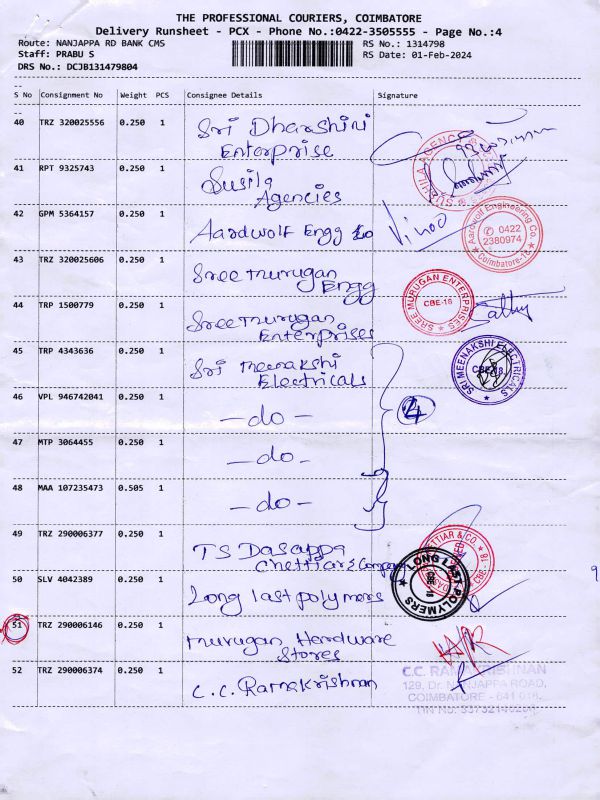 THE PROFESSIONAL COURIERS, COIMBATORE
Delivery Runsheet - PCX - Phone No.:0422-3505555 - Page No.:4
Route: NANJAPPA RD BANK CMS RS No.: 1314798
Staff: PRABU S RS Date: 01-Feb-2024
DRS No.: DCJB131479804
S No Consignment No Weight PCS Consignee Details Signature
40 TRZ 320025556 0.250 1 Sri Dharshini
Enterprise
41 RPT 9325743 0.250 1 Susila
Agencies
SUSHILA AGENCIES
42 GPM 5364157 0.250 1 Aardwolf Engg Co
Vinoo
Aardwolf Engineering Co.
0422
2380974
Coimbatore-18
43 TRZ 320025606 0.250 1 Sree murugan
Engg
44 TRP 1500779 0.250 1 Sree murugan
Enterprises
SREE MURUGAN ENTERPRISES
CBE-18
Sathy
45 TRP 4343636 0.250 1 Sri meenakshi
Electricals
SRI MEENAKSHI ELECTRICALS
CBE-18
46 VPL 946742041 0.250 1 -do-
4
47 MTP 3064455 0.250 1 -do-
48 MAA 107235473 0.505 1 -do-
49 TRZ 290006377 0.250 1 TS Dasappa
Chettiar & Company
CHETTIAR & CO.
CBE-18
50 SLV 4042389 0.250 1 Long last polymers
LONG LAST POLYMERS
CBE-18
9
51 TRZ 290006146 0.250 1 murugan Hardware
Stores
52 TRZ 290006374 0.250 1 C.C. Ramakrishnan
C.C. RAMAKRISHNAN
129, Dr. NANJAPPA ROAD,
COIMBATORE - 641 018.